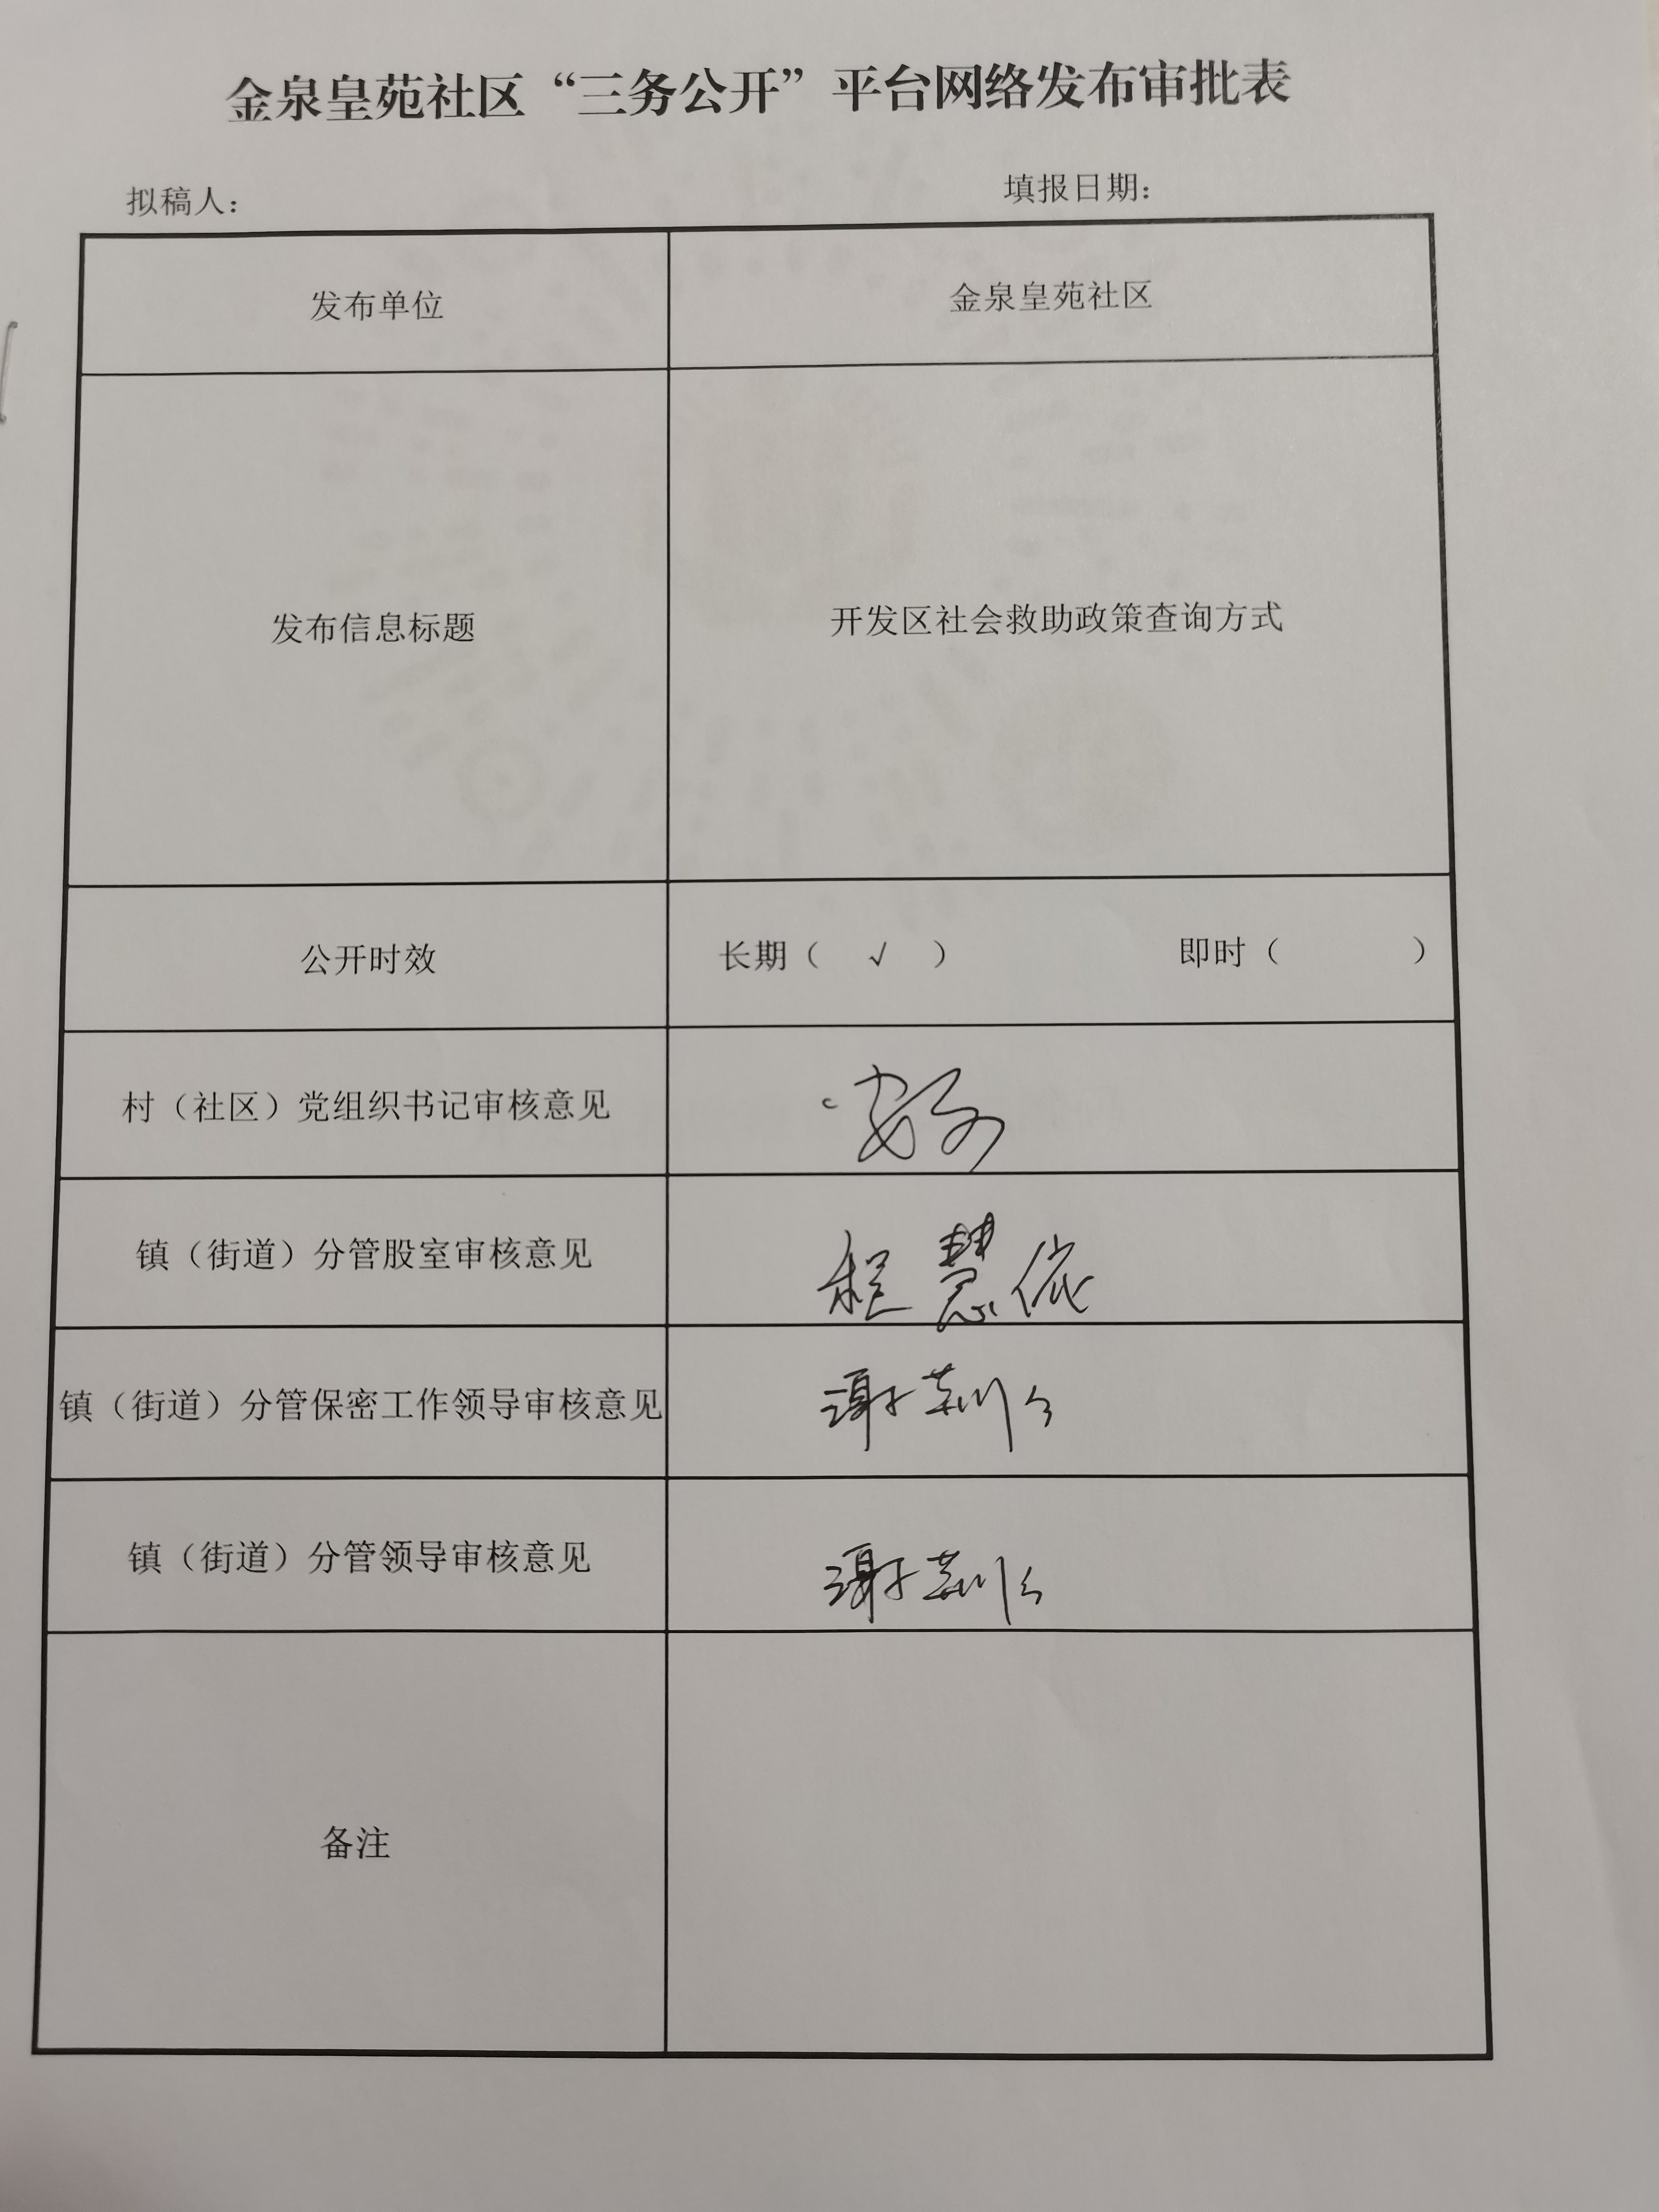 金泉皇苑社区“三务公开”平台网络发布审批表
拟稿人： 填报日期：
发布单位 金泉皇苑社区
发布信息标题 开发区社会救助政策查询方式
公开时效 长期（ √ ） 即时（ ）
村（社区）党组织书记审核意见
镇（街道）分管股室审核意见 程慧依
镇（街道）分管保密工作领导审核意见
镇（街道）分管领导审核意见
备注